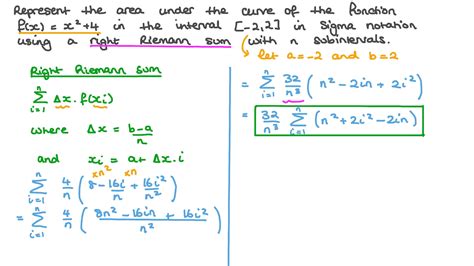 Represent the area under the curve of the function
f(x) = x² + 4 in the interval [-2,2] in Sigma notation
using a right Riemann sum with n subintervals.
let a = -2 and b = 2
Right Riemann sum
n Σ i=1 Δx . f(xi)
where Δx = b-a / n
and xi = a + Δx . i
= n Σ i=1 4/n ( 8 - 16i/n + 16i²/n² )
×n² ×n
= n Σ i=1 4/n ( 8n² - 16in + 16i² / n² )
= n Σ i=1 32/n³ ( n² - 2in + 2i² )
= 32/n³ n Σ i=1 ( n² + 2i² - 2in )